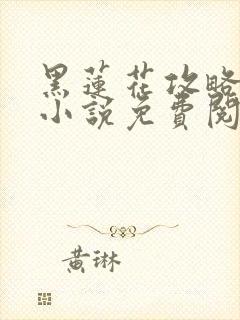 黑蓮花攻略
小說免費閱
黃琳